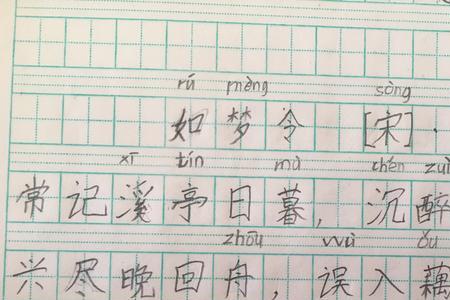 rú mèng sòng
如梦令 [宋]·
xī tín mù chén zuì
常记溪亭日暮，沉醉
zhōu wù ǒu
兴尽晚回舟，误入藕